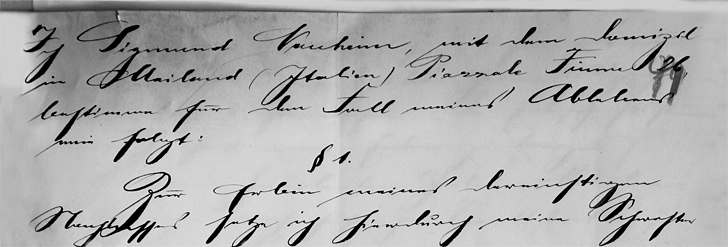 Ich Sigmund Nauheim, mit dem Domizil
in Mailand (Italien) Piazzale Fiume
bestimme für den Fall meines Ablebens
wie folgt:
§ 1.
Zur Erbin meines dereinstigen
Nachlasses setze ich hierdurch meine Schwester